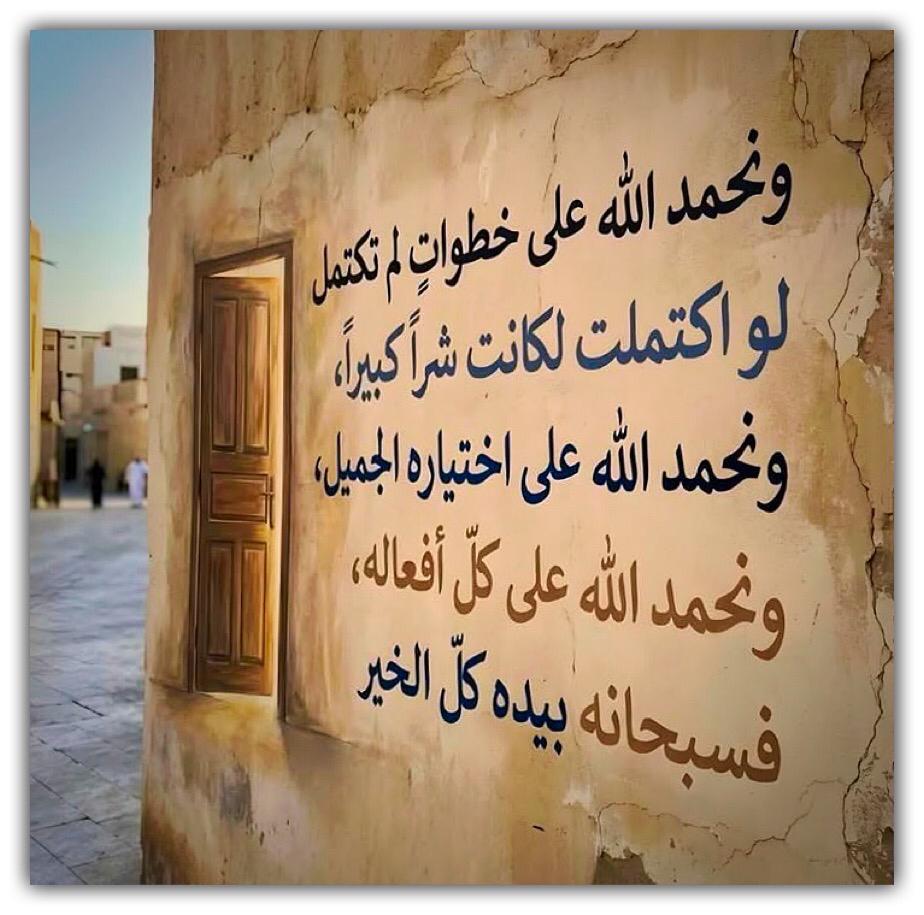 ونحمد الله على خطواتٍ لم تكتمل
لو اكتملت لكانت شراً كبيراً،
ونحمد الله على اختياره الجميل،
ونحمد الله على كلّ أفعاله،
فسبحانه بيده كلّ الخير